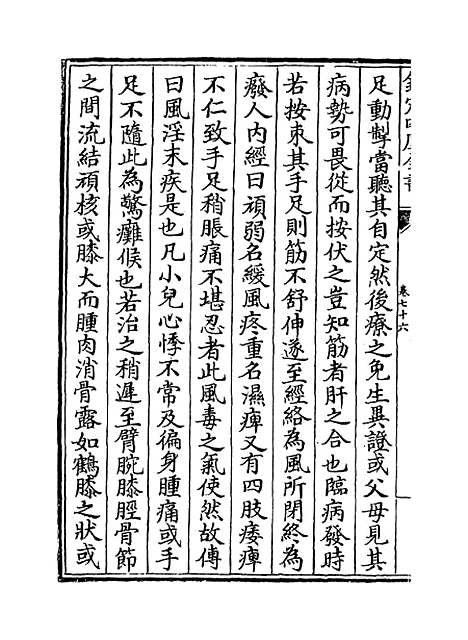 欽定四庫全書
卷七十六
足動掣當聽其自定然後療之免生異證或父母見其
病勢可畏從而按伏之豈知筋者肝之合也臨病發時
若按束其手足則筋不舒伸遂至經絡為風所閉終為
癈人内經曰頑弱名緩風疼重名濕痺又有四肢痿痺
不仁致手足稍脹痛不堪忍者此風毒之氣使然故傳
曰風淫末疾是也凡小兒心悸不常及徧身腫痛或手
足不隨此為驚癱候也若治之稍遲至臂腕膝脛骨節
之間流結頑核或膝大而腫肉消骨露如鶴膝之狀或